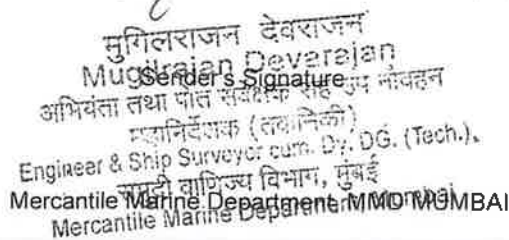 मुगिलराजन देवराजन
Mugilrajan Devarajan
Sender's Signature
अभियंता तथा पोत सर्वेक्षक सह उप नौवहन
महानिर्देशक (तकनिकी)
Engineer & Ship Surveyor cum. Dy. DG. (Tech.),
समुद्री वाणिज्य विभाग, मुंबई
Mercantile Marine Department, MMD MUMBAI
Mercantile Marine Department, Mumbai